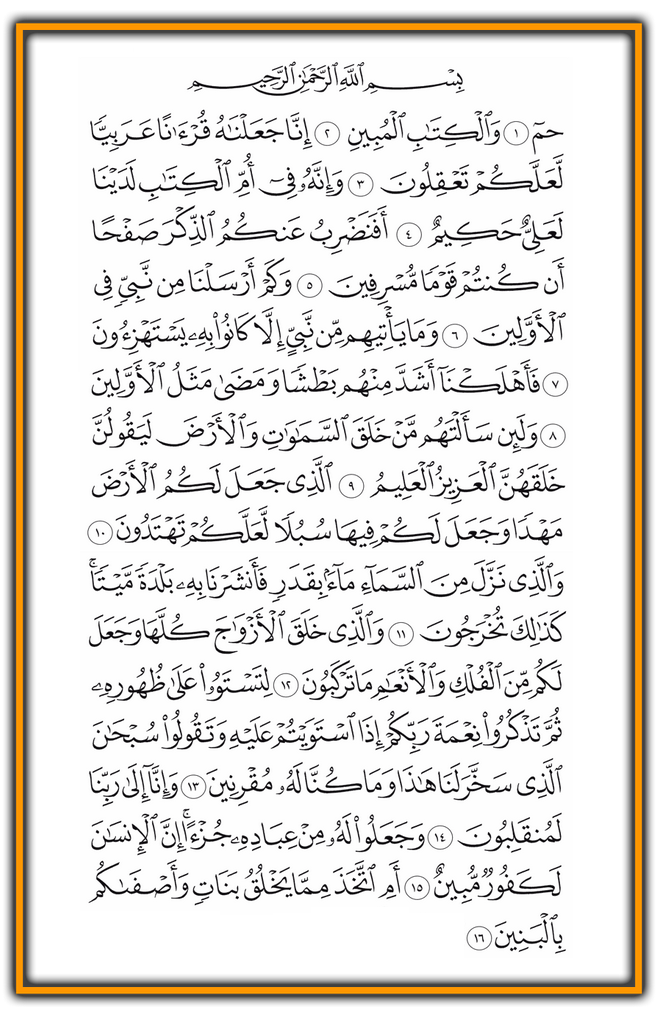 بِسْمِ ٱللَّهِ ٱلرَّحْمَٰنِ ٱلرَّحِيمِ
حمٓ ١ وَٱلْكِتَٰبِ ٱلْمُبِينِ ٢ إِنَّا جَعَلْنَٰهُ قُرْءَٰنًا عَرَبِيًّا
لَّعَلَّكُمْ تَعْقِلُونَ ٣ وَإِنَّهُۥ فِىٓ أُمِّ ٱلْكِتَٰبِ لَدَيْنَا
لَعَلِىٌّ حَكِيمٌ ٤ أَفَنَضْرِبُ عَنكُمُ ٱلذِّكْرَ صَفْحًا
أَن كُنتُمْ قَوْمًا مُّسْرِفِينَ ٥ وَكَمْ أَرْسَلْنَا مِن نَّبِىٍّ فِى
ٱلْأَوَّلِينَ ٦ وَمَا يَأْتِيهِم مِّن نَّبِىٍّ إِلَّا كَانُوا۟ بِهِۦ يَسْتَهْزِءُونَ
٧ فَأَهْلَكْنَآ أَشَدَّ مِنْهُم بَطْشًا وَمَضَىٰ مَثَلُ ٱلْأَوَّلِينَ
٨ وَلَئِن سَأَلْتَهُم مَّنْ خَلَقَ ٱلسَّمَٰوَٰتِ وَٱلْأَرْضَ لَيَقُولُنَّ
خَلَقَهُنَّ ٱلْعَزِيزُ ٱلْعَلِيمُ ٩ ٱلَّذِى جَعَلَ لَكُمُ ٱلْأَرْضَ
مَهْدًا وَجَعَلَ لَكُمْ فِيهَا سُبُلًا لَّعَلَّكُمْ تَهْتَدُونَ ١٠
وَٱلَّذِى نَزَّلَ مِنَ ٱلسَّمَآءِ مَآءًۢ بِقَدَرٍ فَأَنشَرْنَا بِهِۦ بَلْدَةً مَّيْتًا ۚ
كَذَٰلِكَ تُخْرَجُونَ ١١ وَٱلَّذِى خَلَقَ ٱلْأَزْوَٰجَ كُلَّهَا وَجَعَلَ
لَكُم مِّنَ ٱلْفُلْكِ وَٱلْأَنْعَٰمِ مَا تَرْكَبُونَ ١٢ لِتَسْتَوُۥا۟ عَلَىٰ ظُهُورِهِۦ
ثُمَّ تَذْكُرُوا۟ نِعْمَةَ رَبِّكُمْ إِذَا ٱسْتَوَيْتُمْ عَلَيْهِ وَتَقُولُوا۟ سُبْحَٰنَ
ٱلَّذِى سَخَّرَ لَنَا هَٰذَا وَمَا كُنَّا لَهُۥ مُقْرِنِينَ ١٣ وَإِنَّآ إِلَىٰ رَبِّنَا
لَمُنقَلِبُونَ ١٤ وَجَعَلُوا۟ لَهُۥ مِنْ عِبَادِهِۦ جُزْءًا ۚ إِنَّ ٱلْإِنسَٰنَ
لَكَفُورٌ مُّبِينٌ ١٥ أَمِ ٱتَّخَذَ مِمَّا يَخْلُقُ بَنَاتٍ وَأَصْفَىٰكُم
بِٱلْبَنِينَ ١٦